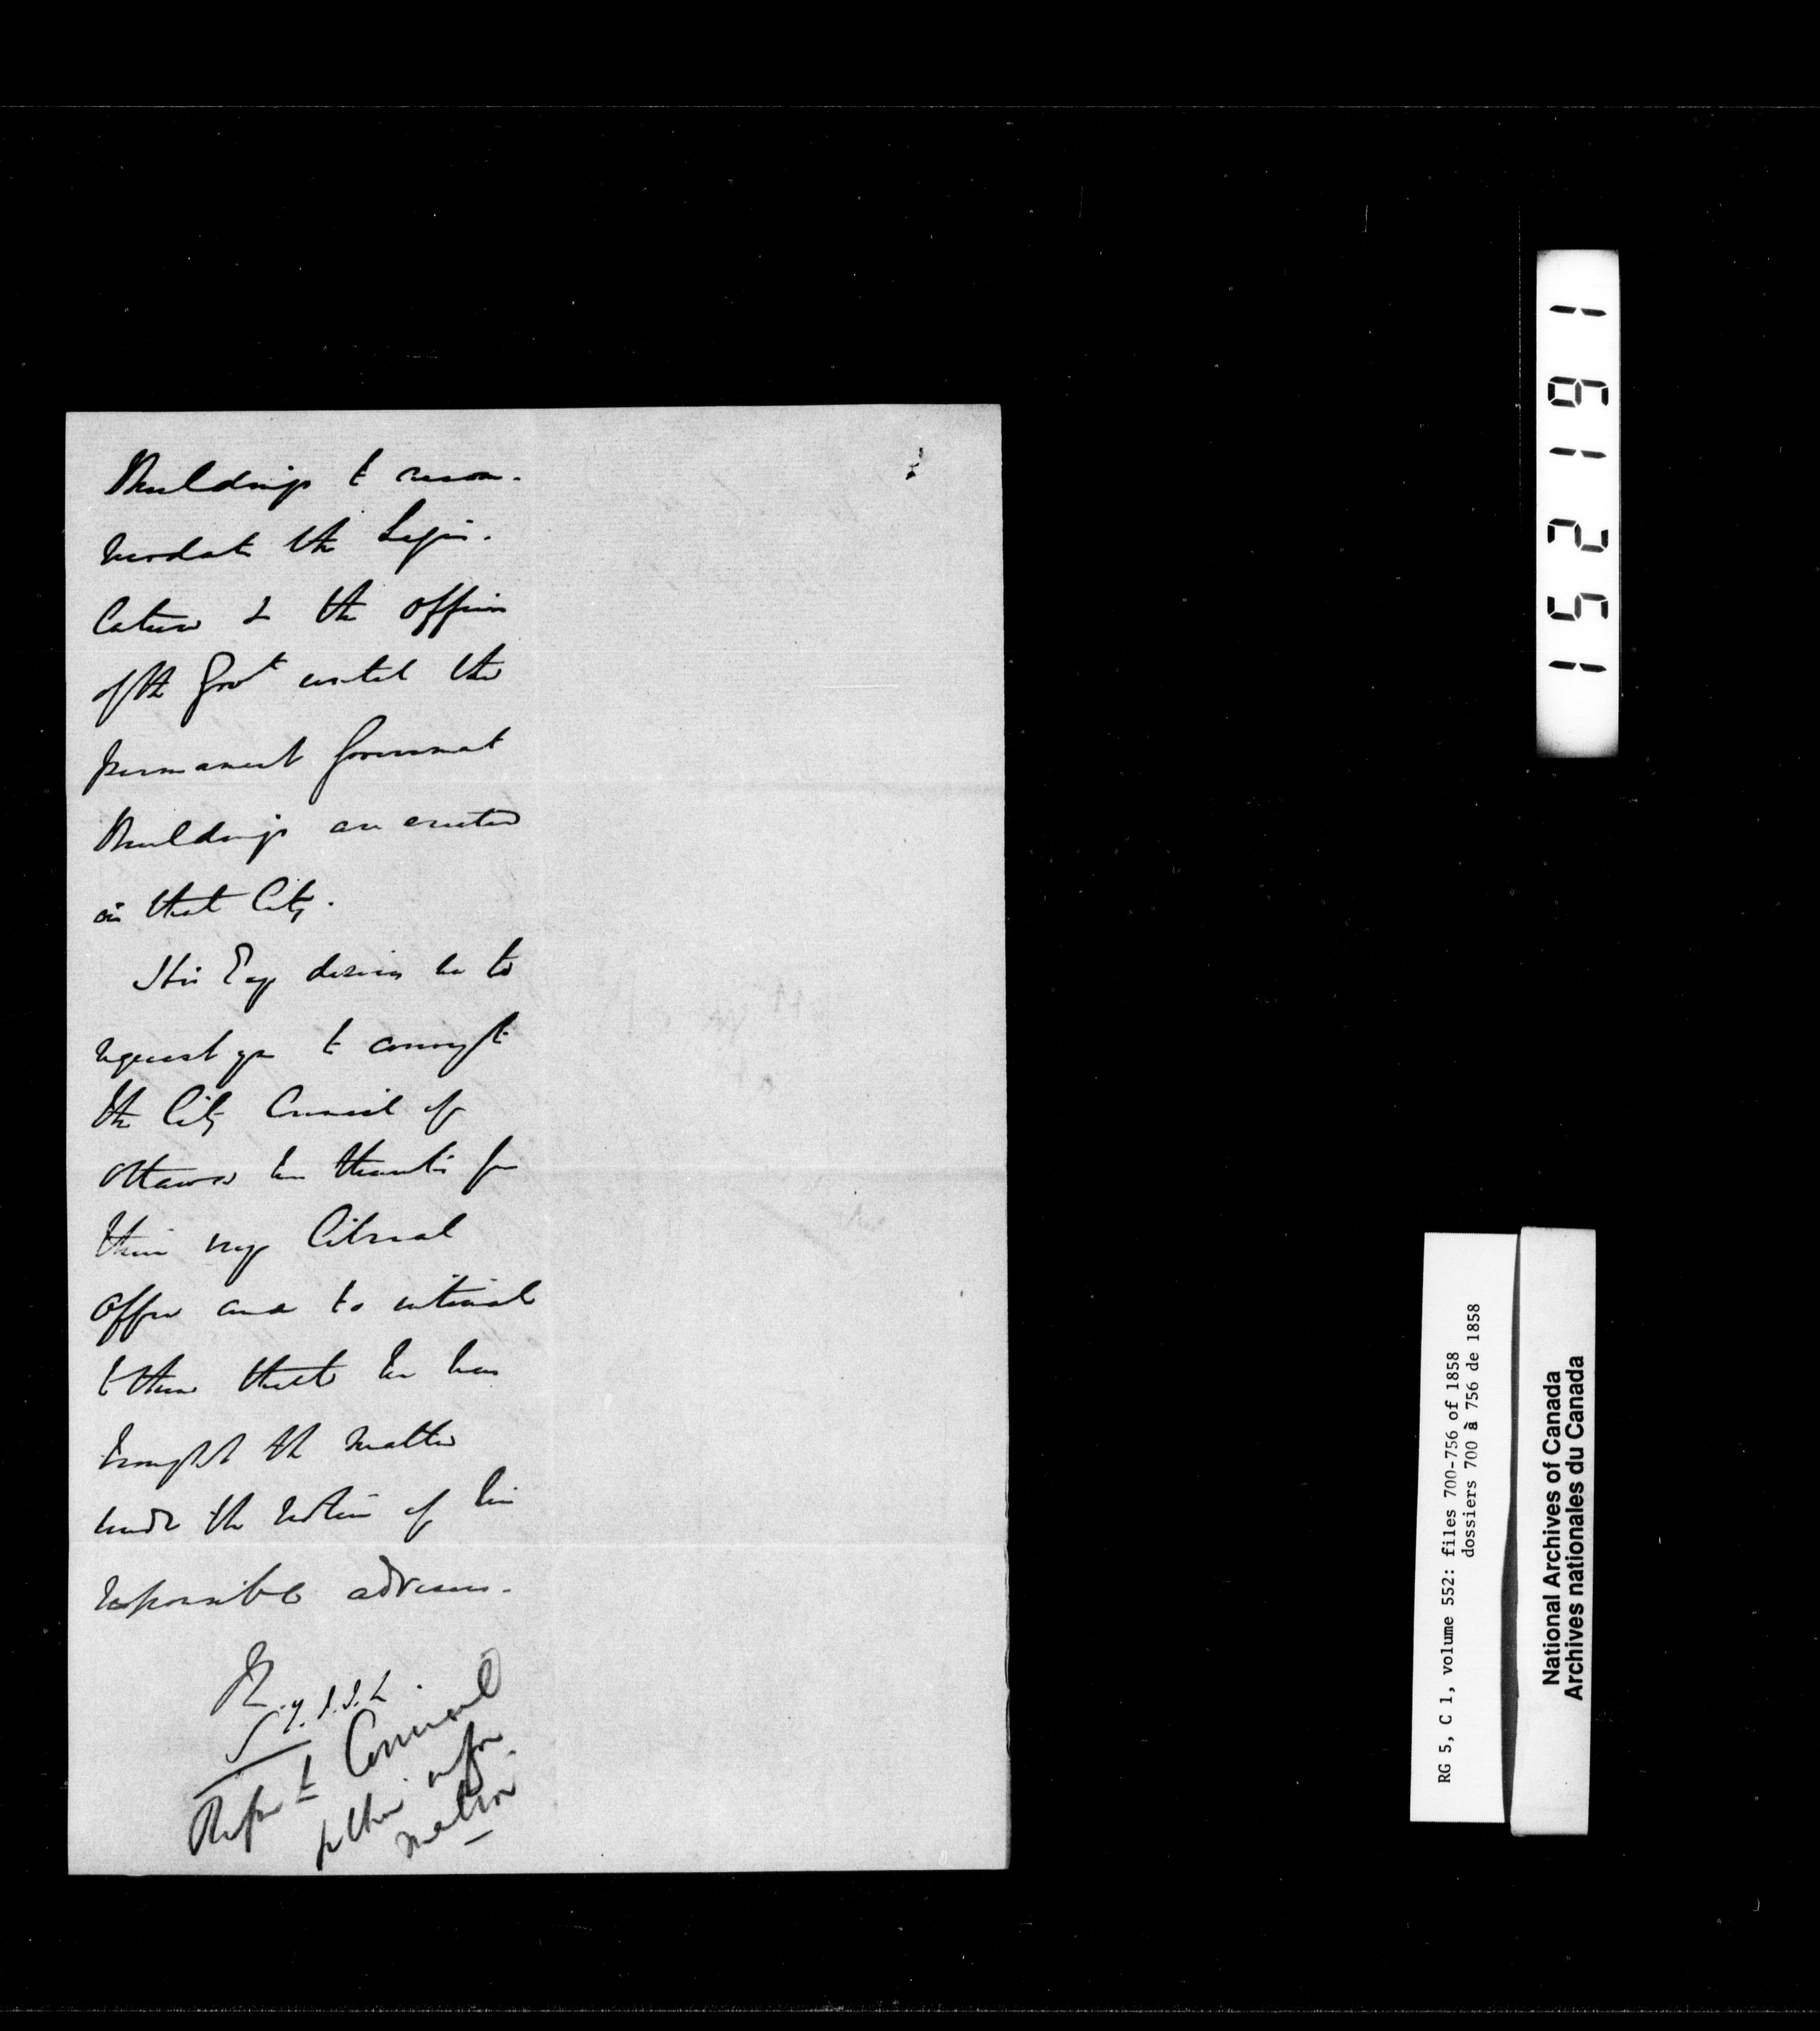 Buildings to accom-
modate the Legis-
lature & the offices
of the Govt until the
permanent Government
Buildings are erected
in that City.
His Exy desires me to
request you to convey to
the City Council of
Ottawa his thanks for
their very liberal
offer and to intimate
to them that he has
brought the matter
under the notice of his
responsible advisers.
Refer to Council
for their infor
mation
152191
RG 5, C 1, volume 552: files 700-756 of 1858
dossiers 700 à 756 de 1858
National Archives of Canada
Archives nationales du Canada